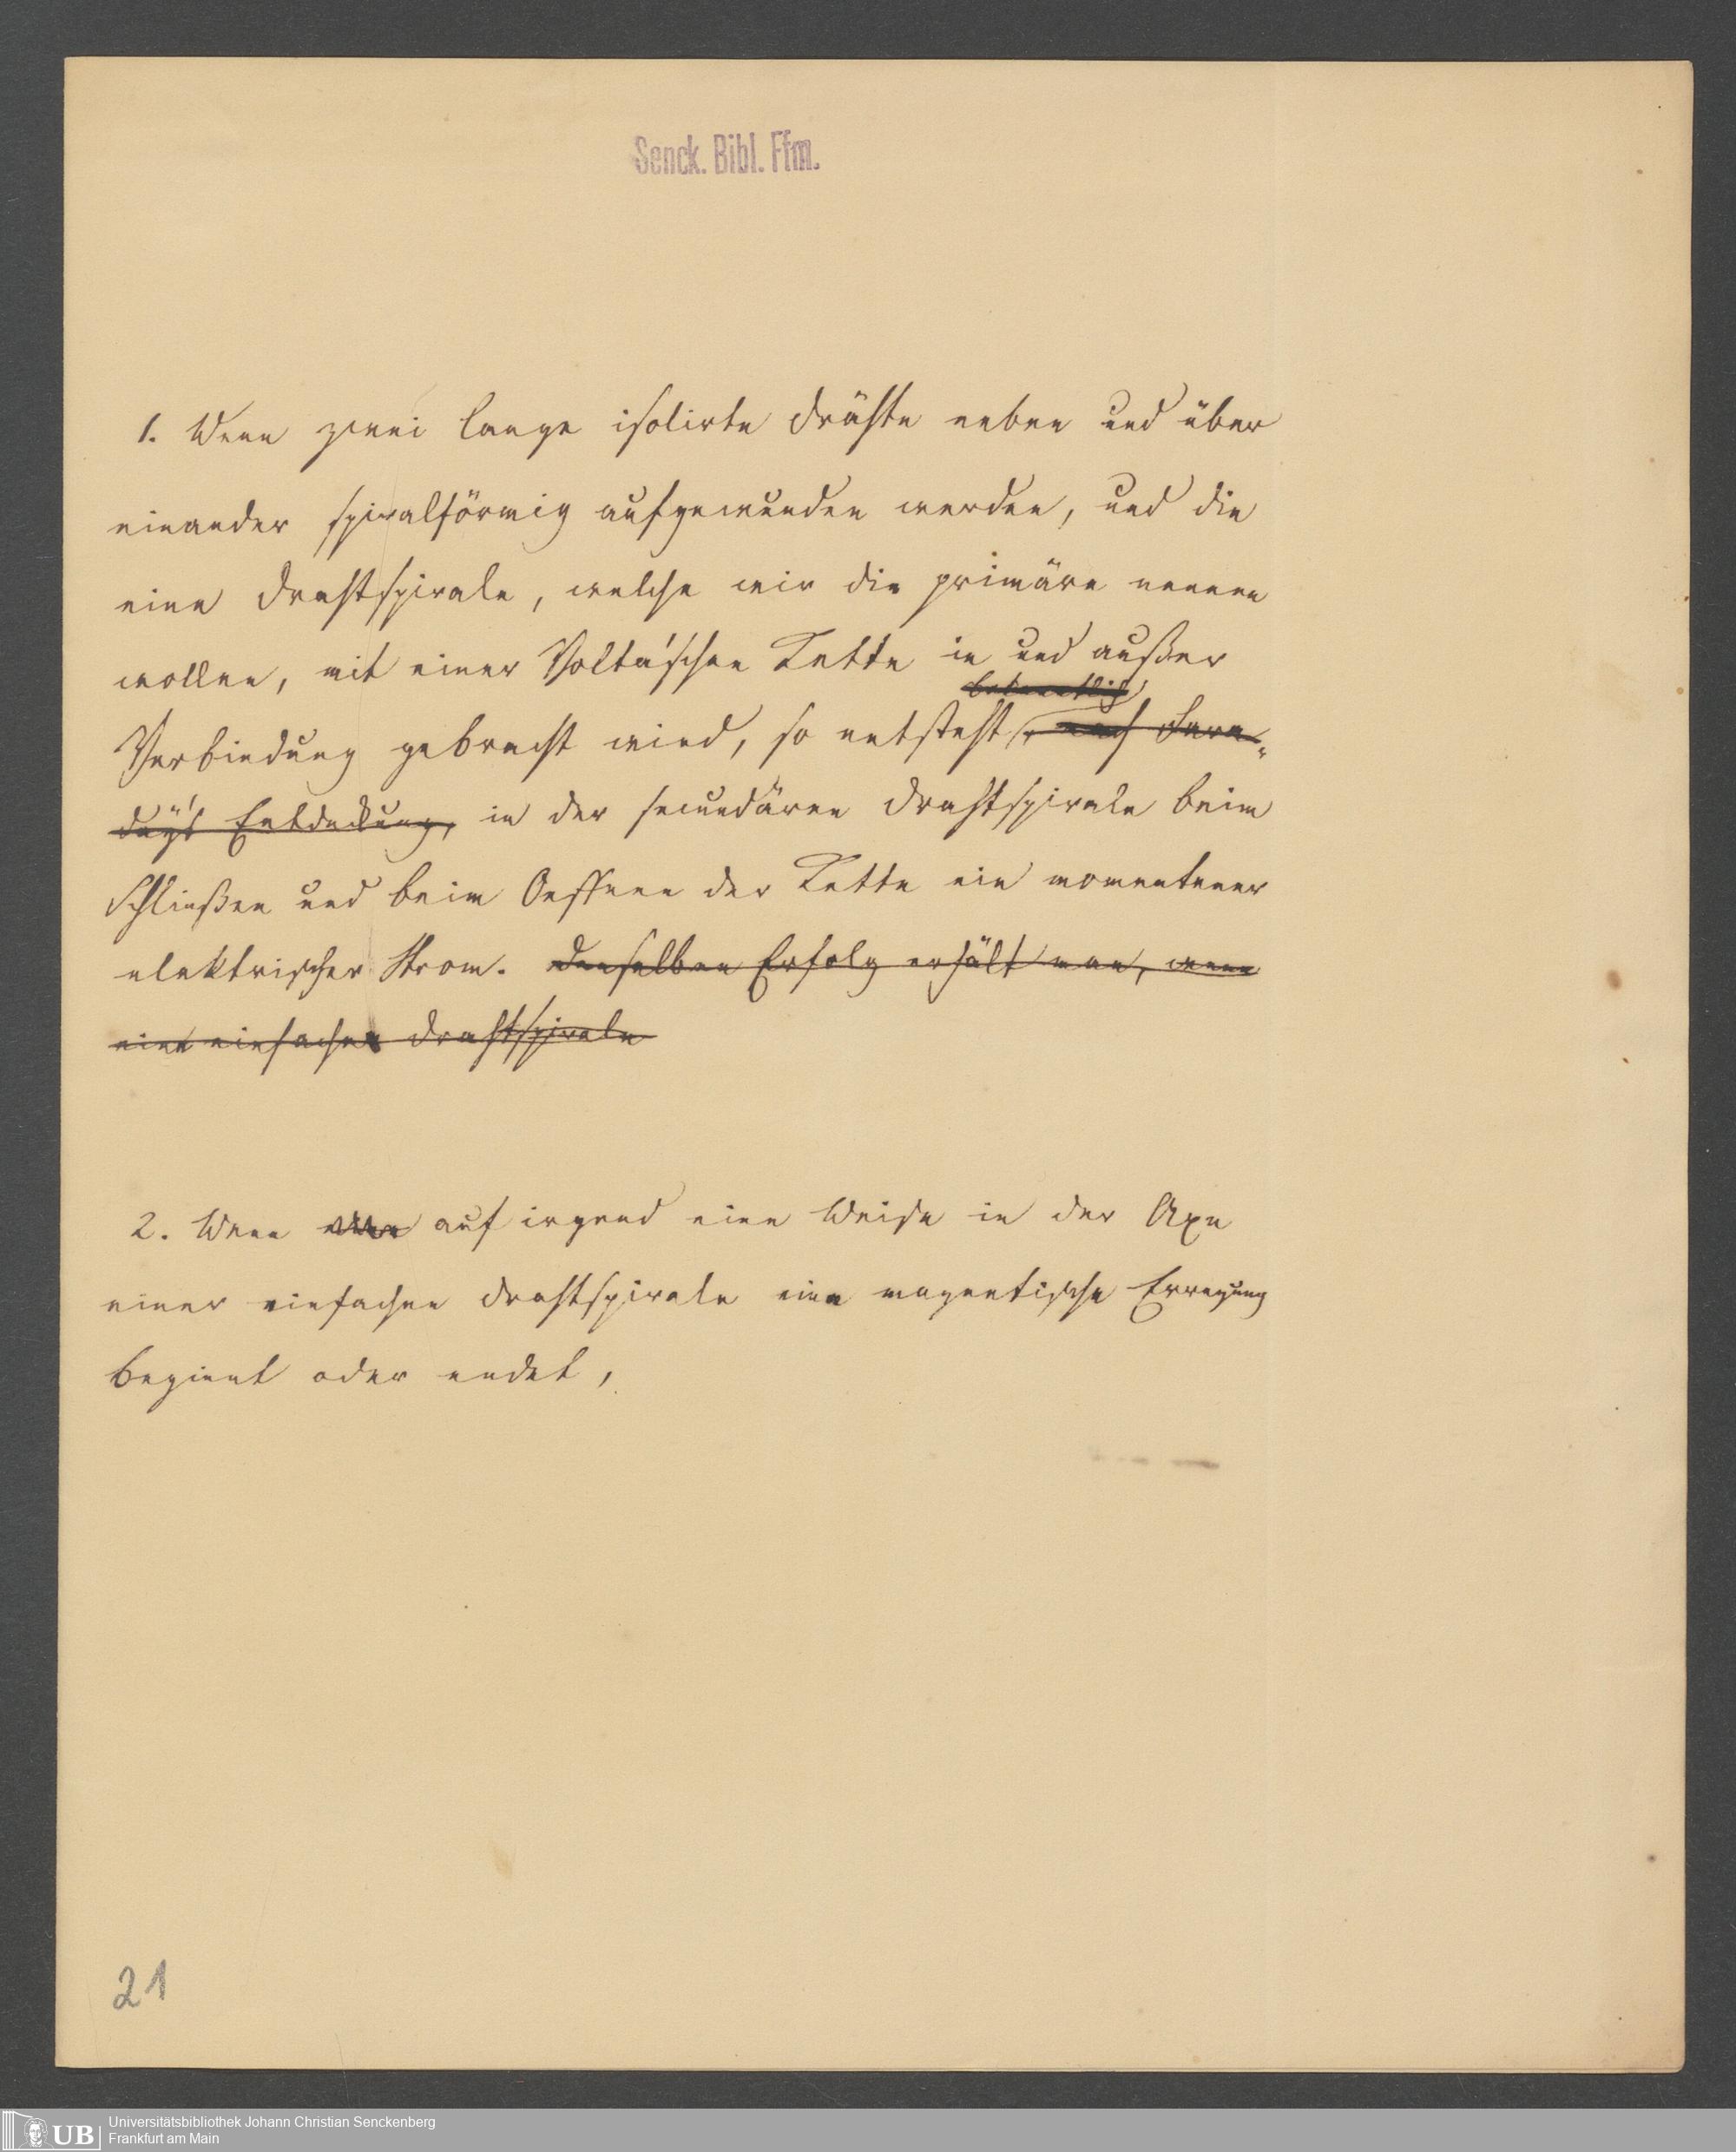 Senck. Bibl. Ffm.
1. Wenn zwei lange isolirte Drähte neben und über
einander spiralförmig aufgewunden werden, und die
eine Drahtspirale, welche wir die primäre nennen
wollen, mit einer Volta'schen Kette in und außer
bekanntlich
Verbindung gebracht wird, so entsteht, nach Fara-
day's Entdeckung, in der secundären Drahtspirale beim
Schließen und beim Oeffnen der Kette ein momentaner
elektrischer Strom. Denselben Erfolg erhält man, wenn
eine einfache Drahtspirale
2. Wenn auf irgend eine Weise in der Axe
einer einfachen Drahtspirale eine magnetische Erregung
beginnt oder endet,
21
UB
Universitätsbibliothek Johann Christian Senckenberg
Frankfurt am Main